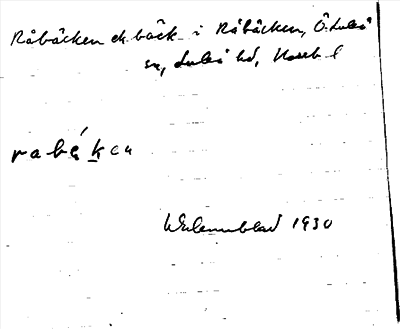 Råbäcken ek bäck i Råbäcken, Ö. Luleå
sn, Luleå hd, Norrb l
rabékcn
1930